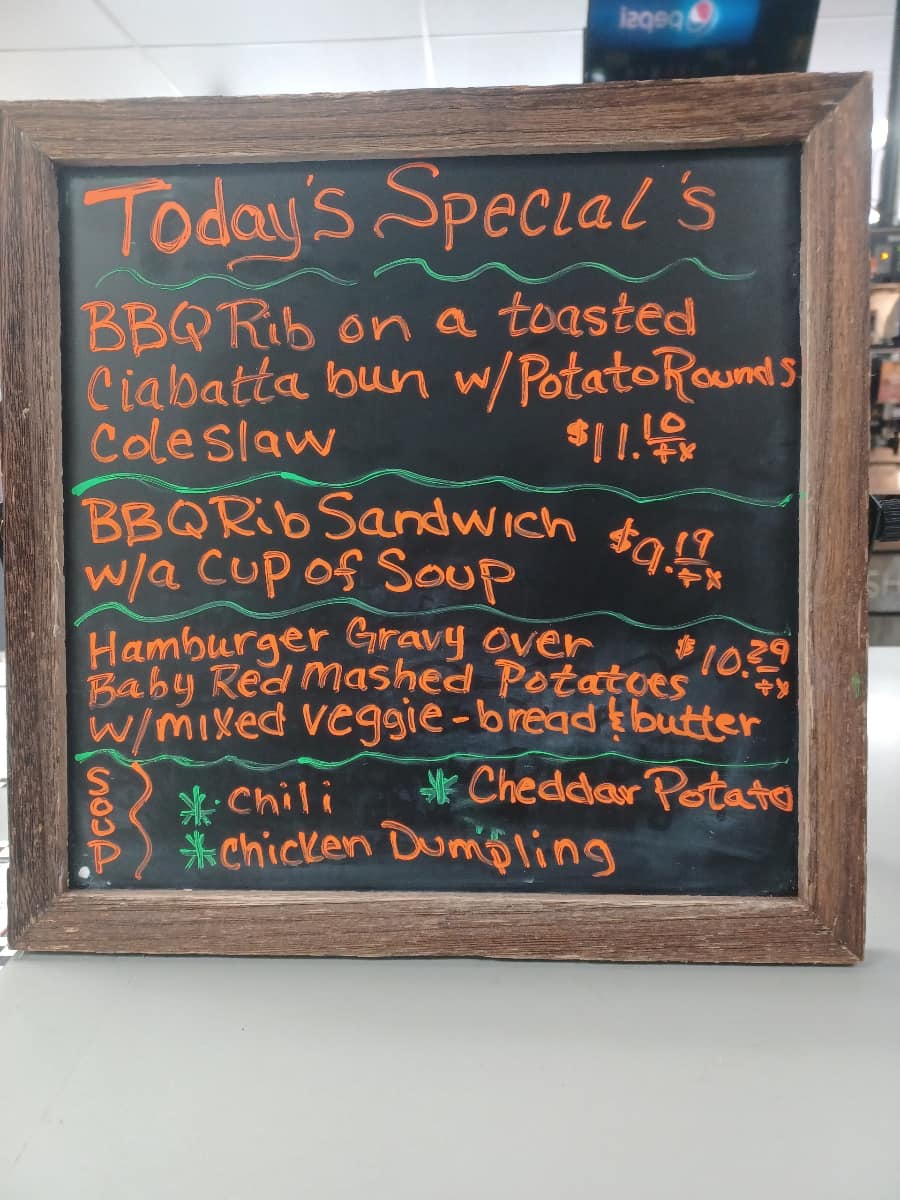 pepsi
Today's Special's
BBQ Rib on a toasted
Ciabatta bun w/ Potato Rounds
Coleslaw $11.10 +x
BBQ Rib Sandwich $9.19 +x
w/a Cup of Soup
Hamburger Gravy over $10.29 +x
Baby Red Mashed Potatoes
w/mixed veggie - bread & butter
SOUP
* Chili * Cheddar Potato
* Chicken Dumpling
SH